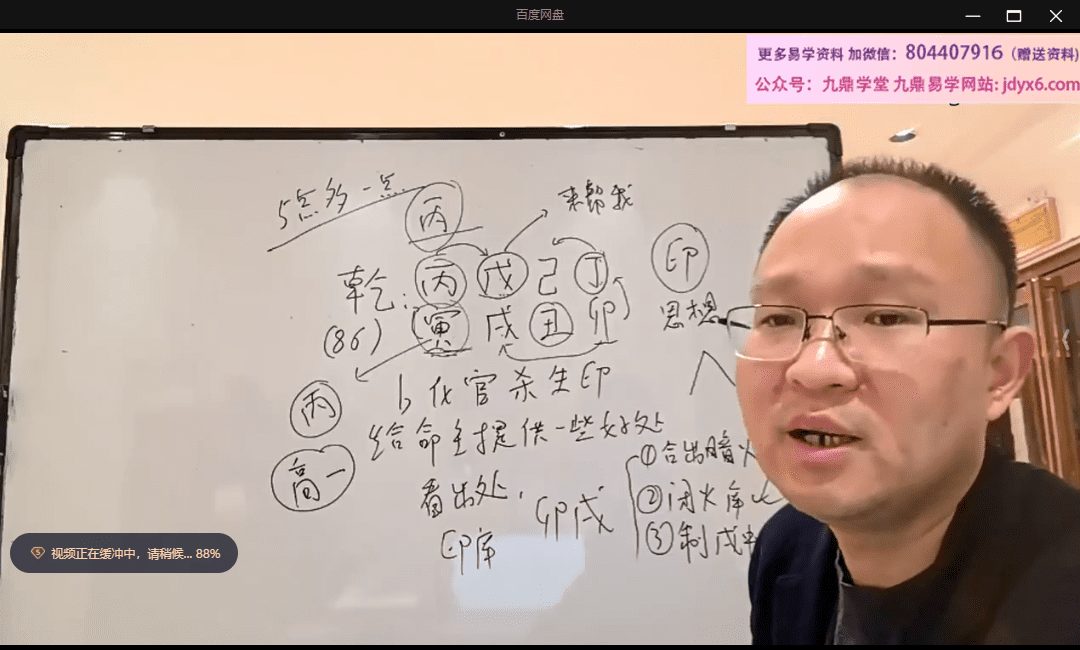 百度网盘
更多易学资料 加微信：804407916（赠送资料)
公众号：九鼎学堂 九鼎易学网站: jdyx6.com
5点多一点
丙
来帮我
乾: 丙 戊 己 丁
(86) 寅 戌 丑 卯
印
思想
丙
化官杀生印
给命主提供一些好处
高一
看出处,
印库
卯戌
①合出暗火
②闭火库
③制戌中
视频正在缓冲中，请稍候... 88%